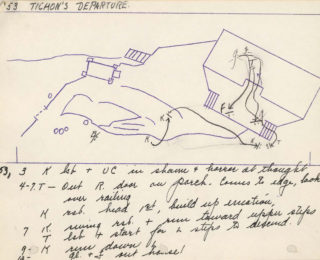 53 TICHON'S DEPARTURE.
K
K
K
T
53, 3 K 1st + UC in shame + horror at thought
4-7. T - Out R. door on porch. Comes to edge, looks
over railing
K rst. head 1st, build up emotion,
7 K rising rst. + run toward upper steps
T 1st + start for 2 steps to descend.
9- K run down
10- out house!